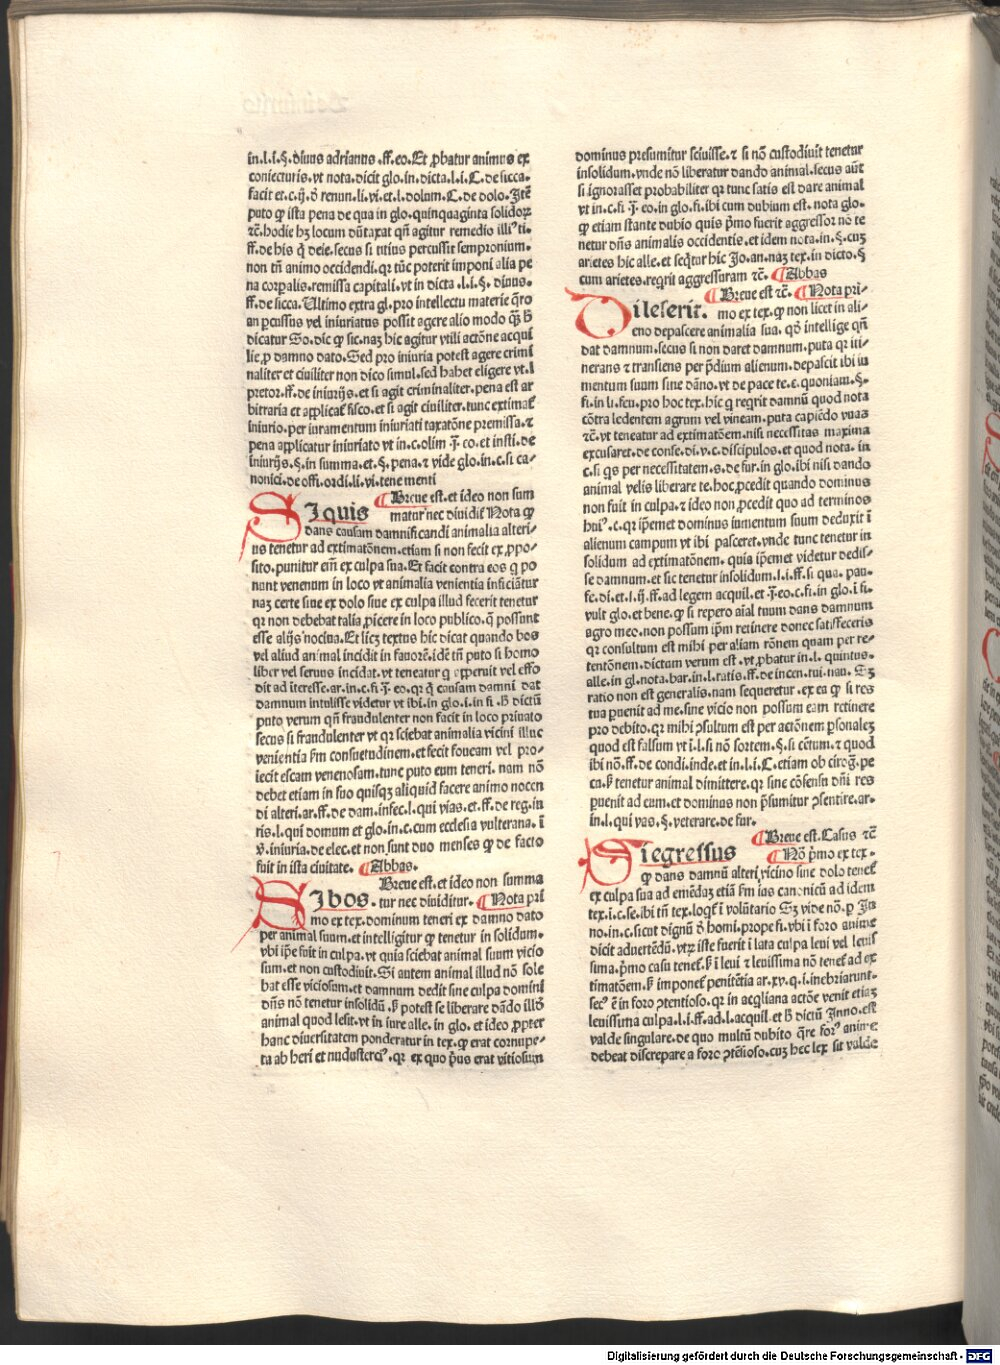 in.l.i.§.diuus adrianus.ff.eo.Et ꝓbatur animus ex
coniecturis.vt nota.dicit glo.in.dicta.l.i.C.de sicca.
facit et.c.ij.ð renun.li.vi.et.l.dolum.C.de dolo.Jtē
puto ꝙ ista pena de qua in glo.quinquaginta solidoꝝ
ꝛc̄.hodie hꝫ locum dūtaxat qn̄ agitur remedio illiꝰ ti.
ff.de his q̄ deie.secus si titius percussit sempronium.
non tn̄ animo occidendi.qꝛ tūc poterit imponi alia pe
na corꝑalis.remissa capitali.vt in dicta.l.i.§.diuus.
ff.de sicca.Ultimo extra gl.pro intellectu materie q̄ro
an ꝑcussus vel iniuriatus possit agere alio modo qꝫ ħ
dicatur So.dic ꝙ sic.naꝫ hic agitur vtili actōne acqui
lie.ꝓ damno dato.Sed pro iniuria potest agere crimi
naliter et ciuiliter non dico simul.sed habet eligere vt.l
pretor.ff.de iniurijs.et si agit criminaliter.pena est ar
bitraria et applicat̄ fisco.et si agit ciuiliter.tunc extimat̄
iniurio.per iuramentum iniuriati taxatōne premissa.⁊
pena applicatur iniuriato vt in.c.olim.j̄.eo.et insti.de
iniurijs.§.in summa.et.§.pena.⁊ vide glo.in.c.si ca/
nonici.de offi.ordi.li.vi.tene menti
¶Breue est.et ideo non sum
SJquis matur nec diuidit̄ Nota ꝙ
dans causam damnificandi animalia alteri/
us tenetur ad extimatōnem.etiam si non fecit ex ꝓpo/
sito.punitur em̄ ex culpa sua.Et facit contra eos q̄ po
nunt venenum in loco vt animalia venientia inficiātur
naꝫ certe siue ex dolo siue ex culpa illud fecerit tenetur
qꝛ non debebat talia ꝓijcere in loco publico.q̄ possunt
esse alijs nociua.Et licꝫ textus hic dicat quando bos
vel aliud animal incidit in fauorē.idē tn̄ puto si homo
liber vel seruus incidat.vt teneatur q̄ apperuit vel effo
dit ad īteresse.ar.in.c.fi.j̄.eo.qꝛ q̄ causam damni dat
damnum intulisse videtur vt ibi.in glo.i.in fi.ħ dictū
puto verum qn̄ fraudulenter non facit in loco priuato
secus si fraudulenter vt qꝛ sciebat animalia vicini illuc
venientia ẜm consuetudinem.et fecit foueam vel pro/
iecit escam venenosam.tunc puto eum teneri.nam nō
debet etiam in suo quisqꝫ aliquid facere animo nocen
di alteri.ar.ff.de dam.infec.l.qui vias.et.ff.de reg.iu
ris.l.qui domum et glo.in.c.cum ecclesia vulterana.ī
v̄.iniuria.de elec.et non sunt duo menses ꝙ de facto
fuit in ista ciuitate. ¶Abbas.
Breue est.et ideo non summa
SJbos. tur nec diuiditur. ¶Nota pri
mo ex tex.dominum teneri ex damno dato
per animal suum.et intelligitur ꝙ tenetur in solidum.
vbi ip̄e fuit in culpa.vt quia sciebat animal suum vicio
sum.et non custodiuit.Si autem animal illud nō sole
bat esse viciosum.et damnum dedit sine culpa domini
dn̄s nō tenetur insolidū.ẜ potest se liberare dādo illð
animal quod lesit.vt in iure alle.in glo.et ideo ꝓpter
hanc diuersitatem ponderatur in tex.ꝙ erat cornupe/
ta ab heri et nudustercꝰ.qꝛ ex quo p̄us erat vitiosum
dominus presumitur sciuisse.⁊ si nō custodiuit tenetur
insolidum.vnde nō liberatur dando animal.secus aūt
si ignorasset probabiliter qꝛ tunc satis est dare animal
vt in.c.fi.j̄.eo.in glo.fi.ibi cum dubium est.nota glo.
ꝙ etiam stante dubio quis p̄mo fuerit aggressor nō te
netur dn̄s animalis occidentis.et idem nota.in.§.cuꝫ
arietes hic alle.et seq̄tur hic Jo.an.naꝫ tex.in dicto.§
cum arietes.reqrit aggressuram ꝛc̄. ¶Abbas
¶Breue est ꝛc̄. ¶Nota pri/
SJleserit. mo ex tex.ꝙ non licet in ali/
eno depascere animalia sua.qð intellige qn̄
dat damnum.secus si non daret damnum.puta qꝛ iti/
nerans ⁊ transiens per p̄dium alienum.depascit ibi iu
mentum suum sine dāno.vt de pace te.c.quoniam.§.
fi.in li.feu.pro hoc tex.hic q̄ reqrit damnū quod nota
cōtra ledentem agrum vel vineam.puta capiēdo vuas
ꝛc̄.vt teneatur ad extimatōem.nisi necessitas maxima
excusaret.de conse.di.v.c.discipulos.et quod nota.in
c.si qs per necessitatem.s.de fur.in glo.ibi nisi dando
animal velis liberare te.hoc ꝓcedit quando dominus
non fuit in culpa.⁊ ideo non ꝓcedit quo ad terminos
huiꝰ.c.qꝛ ip̄emet dominus iumentum suum deduxit ī
alienum campum vt ibi pasceret.vnde tunc tenetur in
solidum ad extimatōnem.quia ip̄emet videtur dedis/
se damnum.et sic tenetur insolidum.l.i.ff.si qua.pau/
fe.di.et.l.ij.ff.ad legem acquil.et j̄.eo.c.fi.in glo.i fi.
vult glo.et bene.ꝙ si repero aīal tuum dans damnum
agro meo.non possum ip̄m retinere donec satisfeceris
qꝛ consultum est mihi per aliam rōnem quam per re/
tentōnem.dictum verum est.vt ꝓbatur in.l.quintus.
alle.in gl.nota.bar.in.l.ratis.ff.de incen.rui.nau.Sꝫ
ratio non est generalis.nam sequeretur.ex ea ꝙ si res
tua ꝑuenit ad me.sine vicio non possum eam retinere
pro debito.qꝛ mihi ꝯsultum est per actōnem ꝑsonaleꝫ
quod est falsum vt ī.l.si nō sortem.§.si cētum.⁊ quod
ibi nō.ff.de condi.inde.et in.l.i.C.etiam ob cirog̃.pe
cu.ẜ tenetur animal dimittere.qꝛ sine cōsensu dn̄i res
ꝑuenit ad eum.et dominus non p̄sumitur ꝯsentire.ar.
in.l.qui vas.§.veterare.de fur.
¶Breue est.Casus ꝛc̄
SJegressus ¶Nō p̄mo ex tex.
ꝙ dans damnū alteri vicino sine dolo tenet̄
ex culpa sua ad emēdaꝫ etiā ẜm ius canonicū ad idem
tex.i.c.se.ibi tn̄ tex.loqt̄ i volūtario Sꝫ vide nō.ꝑ Jn
no.in.c.sicut dignū ð homi.prope fi.vbi i foro anime
dicit aduertēdū.vtꝝ iste fuerit i lata culpa leui vel leuis
sima.p̄mo casu tenet̄.ẜ ī leui ⁊ leuissima nō tenet̄ ad ex
timatōem.ẜ imponet̄ penitētia ar.xv.q.i.inebriarunt.
secꝰ ē in foro ꝯtentioso.qꝛ in acqliana actōe venit etiaꝫ
leuissima culpa.l.i.ff.ad.l.acquil.et ħ dictū Jnno.est
valde singulare.de quo multū dubito q̄re forꝰ anime
debeat discrepare a foro ꝯtētioso.cuꝫ hec lex sit valde
Digitalisierung gefördert durch die Deutsche Forschungsgemeinschaft - DFG